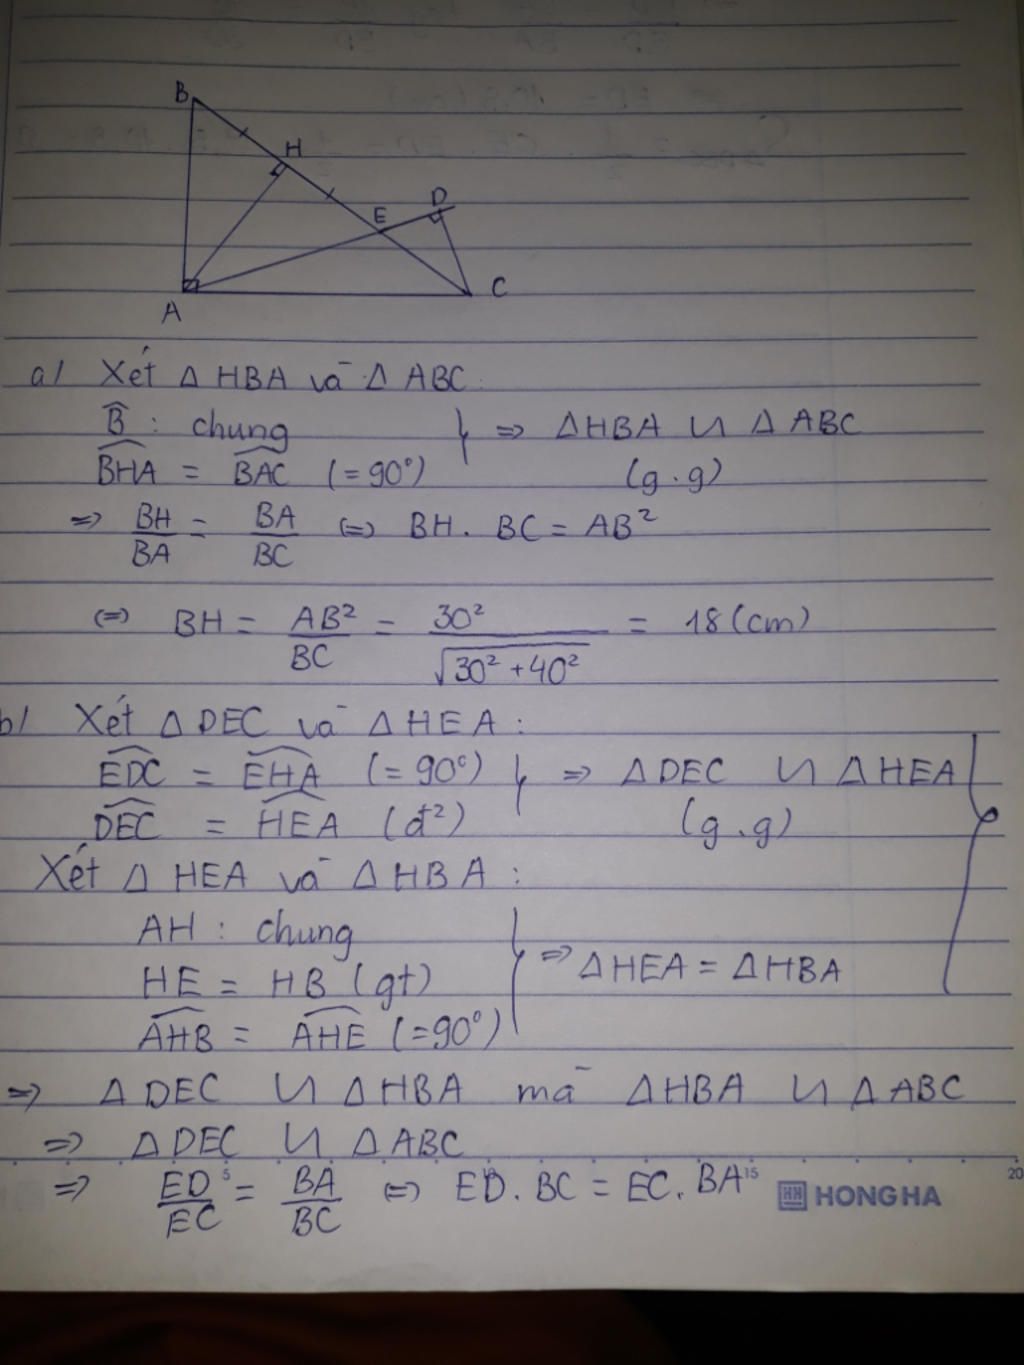 B
H
D
E
A
C
a/ Xét Δ HBA và Δ ABC:
B̂ : chung ⇒ ΔHBA ∽ Δ ABC
BHA = BAC (= 90°) (g.g)
⇒ BH/BA = BA/BC ⇔ BH. BC = AB²
⇔ BH = AB²/BC = 30²/√30² + 40² = 18 (cm)
b/ Xét Δ DEC và Δ HEA :
EDC = EHA (= 90°) } ⇒ Δ DEC ∽ Δ HEA
DEC = HEA (đ²) (g.g)
Xét Δ HEA và Δ HBA :
AH : chung
HE = HB (gt) ⇒ ΔHEA = ΔHBA
AHB = AHE (=90°)
⇒ Δ DEC ∽ Δ HBA mà Δ HBA ∽ Δ ABC
⇒ Δ DEC ∽ Δ ABC
⇒ ED/EC = BA/BC ⇔ ED. BC = EC. BA
5 15 20
HH HONG HA